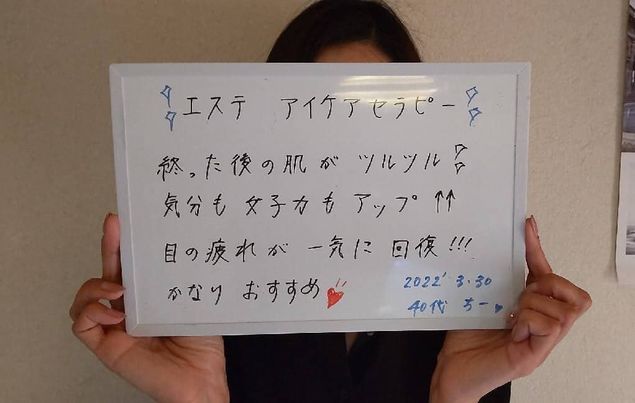 エステ アイケアセラピー
終った後の肌が ツルツル
気分も 女子力も アップ ↑↑
目の疲れが 一気に 回復!!!
かなり おすすめ
2022' 3.30
40代 ちー